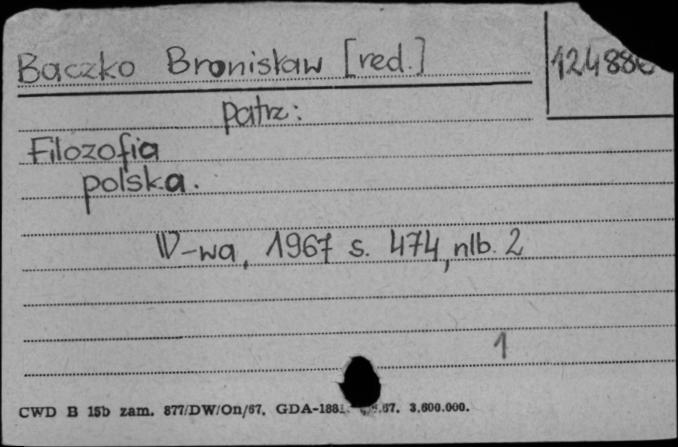 Baczko Bronisław [red.]
patrz:
Filozofia
polska.
W-wa, 1967 s. 474, nlb. 2
1
CWD B 15b zam. 877/DW/On/67. 3.600.000.